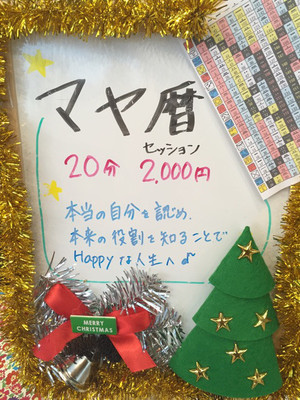 マヤ暦
セッション
20分 2,000円
本当の自分を認め、
本来の役割を知ることで
Happyな人生へ
MERRY
CHRISTMAS